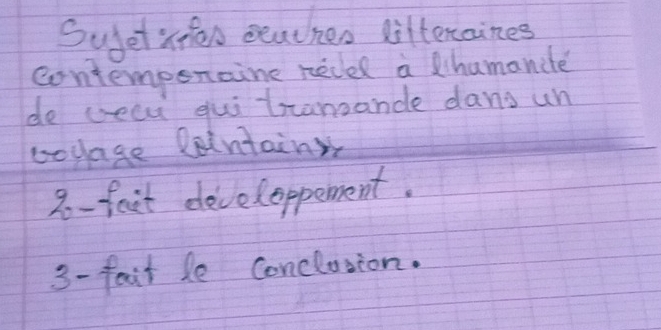 Sujet «les oeuvres litteraires
contemporaine révèl à l'humanité
de vecu qui transande dans un
voyage lointain»
2-fait developpement.
3-fait le conclusion.